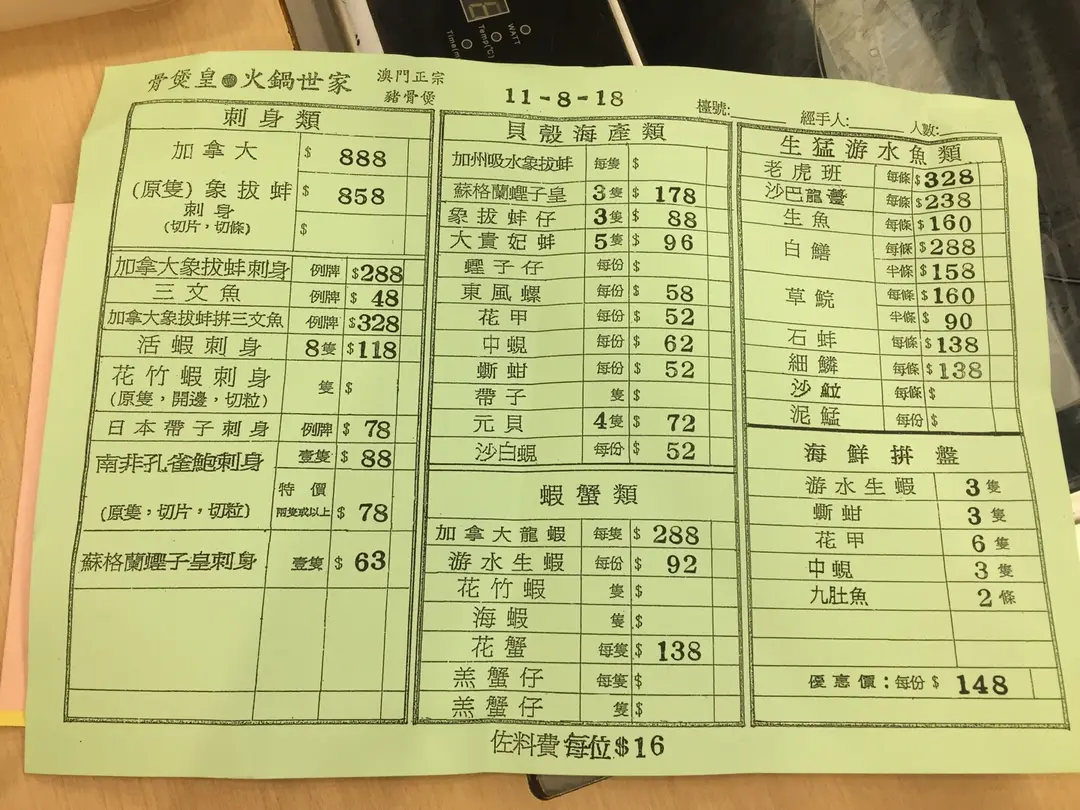 WATT
Temp(°C)
骨煲皇 火鍋世家 澳門正宗 豬骨煲 11-8-18 檯號: 經手人: 人數:
刺身類
加拿大 $ 888
(原隻)象拔蚌 $ 858
刺身
(切片,切條) $
加拿大象拔蚌刺身 例牌 $288
三文魚 例牌 $ 48
加拿大象拔蚌拼三文魚 例牌 $328
活蝦刺身 8隻 $118
花竹蝦刺身 隻 $
(原隻,開邊,切粒)
日本帶子刺身 例牌 $ 78
南非孔雀鮑刺身 壹隻 $ 88
特價
(原隻,切片,切粒)兩隻或以上 $ 78
蘇格蘭蟶子皇刺身 壹隻 $ 63
貝殼海產類
加州吸水象拔蚌 每隻 $
蘇格蘭蟶子皇 3隻 $ 178
象拔蚌仔 3隻 $ 88
大貴妃蚌 5隻 $ 96
蟶子仔 每份 $
東風螺 每份 $ 58
花甲 每份 $ 52
中蜆 每份 $ 62
螄蚶 每份 $ 52
帶子 隻 $
元貝 4隻 $ 72
沙白蜆 每份 $ 52
蝦蟹類
加拿大龍蝦 每隻 $ 288
游水生蝦 每份 $ 92
花竹蝦 隻 $
海蝦 隻 $
花蟹 每隻 $ 138
羔蟹仔 每隻 $
羔蟹仔 隻 $
生猛游水魚類
老虎班 每條 $328
沙巴龍躉 每條 $238
生魚 每條 $160
白鱔 每條 $288
半條 $158
草鯇 每條 $160
半條 $ 90
石蚌 每條 $138
細鱗 每條 $138
沙䱛 每條 $
泥鯭 每份 $
海鮮拼盤
游水生蝦 3隻
螄蚶 3隻
花甲 6隻
中蜆 3隻
九肚魚 2條
優惠價:每份 $ 148
佐料費 每位 $16